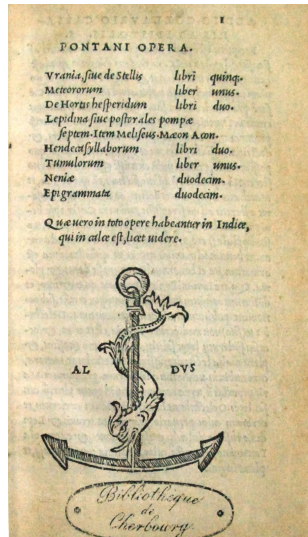 1
PONTANI OPERA.
Vrania, siue de Stellis libri quinq;.
Meteororum liber unus.
De Hortis hesperidum libri duo.
Lepidina siue postorales pompæ
septem. Item Meliseus. Mæon Acon.
Hendecasyllaborum libri duo.
Tumulorum liber unus.
Neniæ duodecim.
Epigrammata duodecim.
Quæ uero in toto opere habeantur in Indice,
qui in calce est, licet uidere.
AL DVS
Bibliothèque
de
Cherbourg.